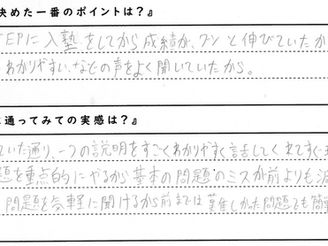 決めた一番のポイントは？』
TEPに入塾をしてから成績が、グンと伸びていたか
わかりやすい、などの声をよく聞いていたから。
通ってみての実感は？』
いた通り、一つの説明をすごくわかりやすく話してくれてすぐ
題を重点的にやるから基本の問題のミスが前よりも減
問題を気軽に聞けるから前までは難しかった問題でも簡